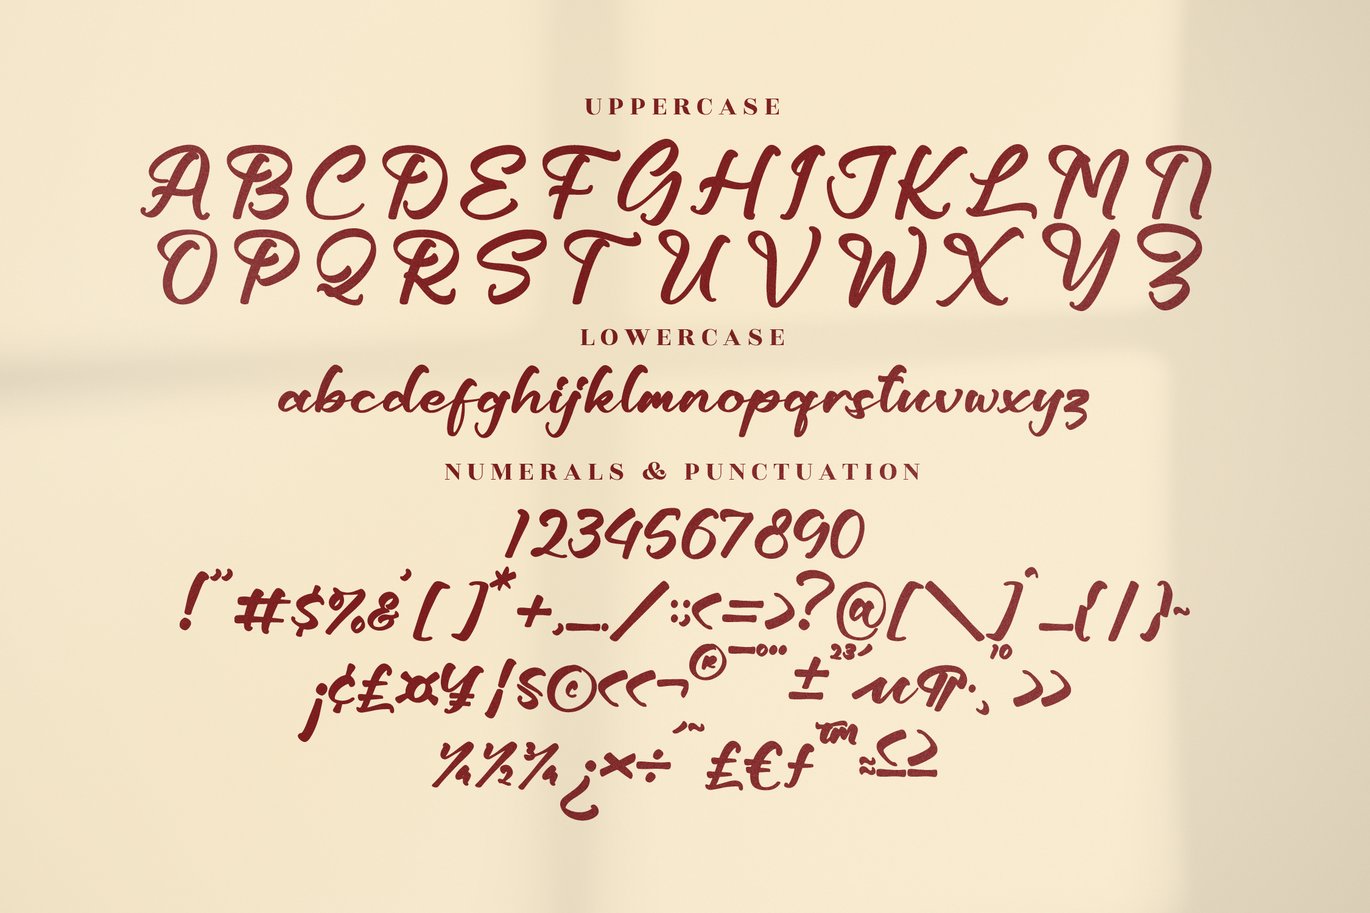 UPPERCASE
ABCDEFGHIJKLMN
OPQRSTUVWXYZ
LOWERCASE
abcdefghijklmnopqrstuvwxyz
NUMERALS & PUNCTUATION
1234567890
!"#$%&'[]*+,_./:;<=>?@[\]^_{|}~
¡¢£¤¥¦§©<<¬®¯°¨±²³´µ¶·¸¹º>>
¼½¾¿×÷´˜£€ƒ™≈≤≥